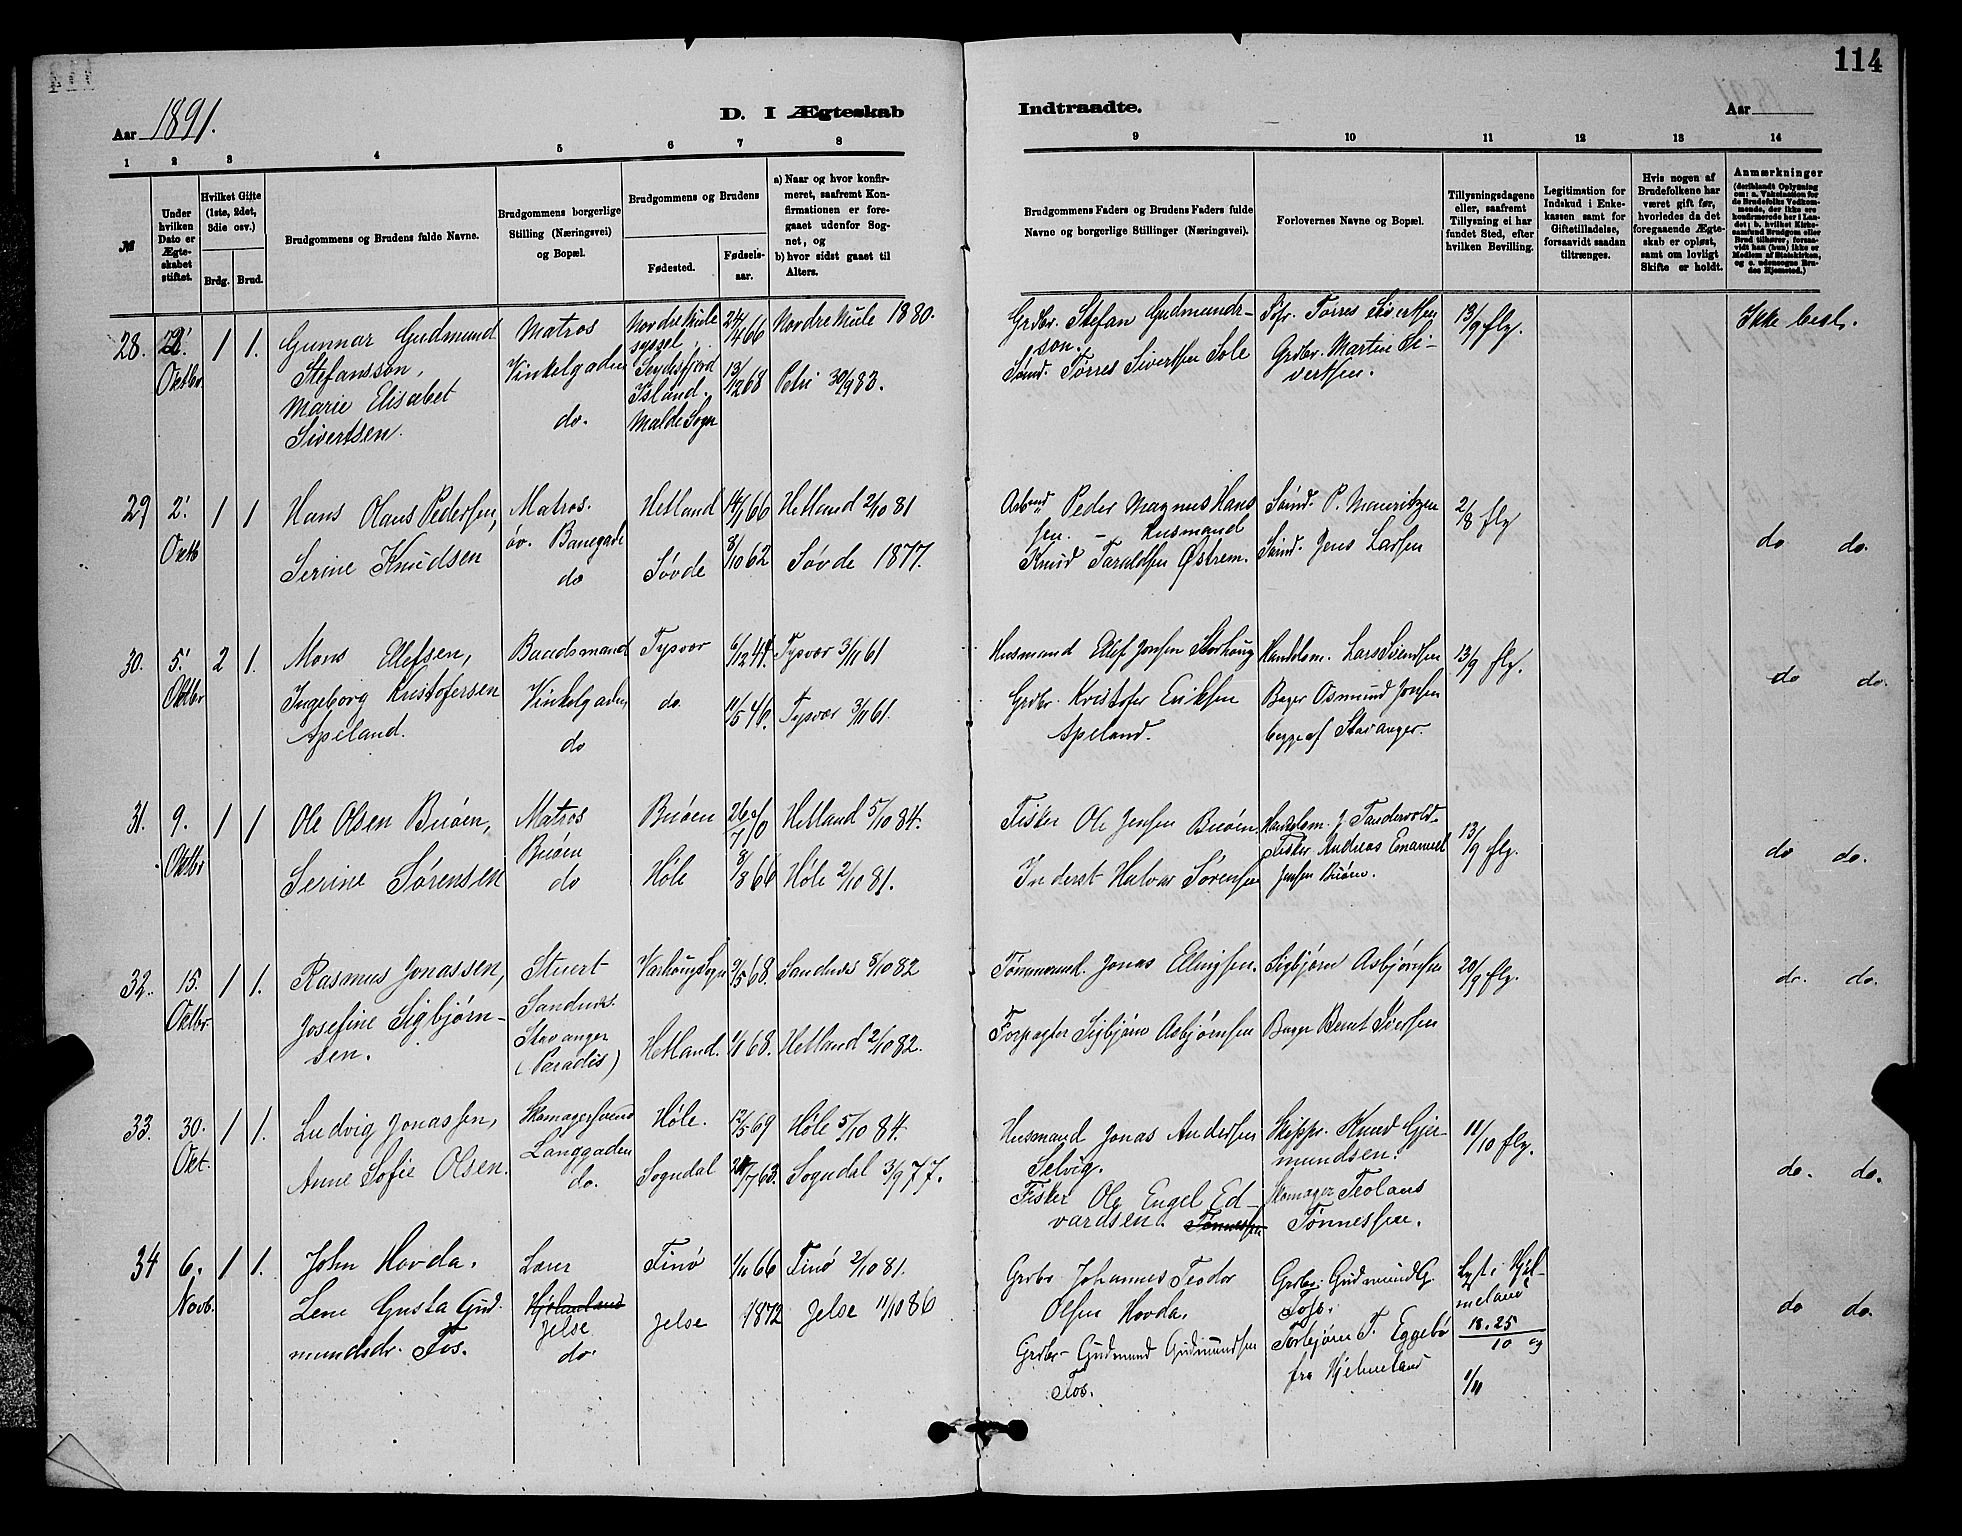 114
Aar 1891.
D. I Ægteskab
Indtraadte.
Aar
1 2 3 4 5 6 7 8 9 10 11 12 13 14
№
Under hvilken Dato er Ægteskabet stiftet.
Hvilket Gifte (1ste, 2det, 3die osv.)
Brdg. Brud.
Brudgommens og Brudens fulde Navne.
Brudgommens borgerlige Stilling (Næringsvei) og Bopæl.
Brudgommens og Brudens
Fødested.
Fødselsaar.
a) Naar og hvor konfirmeret, saafremt Konfirmationen er foregaaet udenfor Sognet, og
b) hvor sidst gaaet til Alters.
Brudgommens Faders og Brudens Faders fulde Navne og borgerlige Stillinger (Næringsvei).
Forlovernes Navne og Bopæl.
Tillysningsdagene eller, saafremt Tillysning ei har fundet Sted, efter hvilken Bevilling.
Legitimation for Indskud i Enkekassen samt for Giftetilladelse, forsaavidt saadan tiltrænges.
Hvis nogen af Brudefolkene har været gift før, hvorledes da det foregaaende Ægteskab er opløst, samt om lovligt Skifte er holdt.
Anmærkninger
(deriblandt Oplysning om: a. Vakcination for de Brudefolks Vedkommende, der ikke ere konfirmerede her i Landet; b. hvilket Kirkesamfund Brudgom eller Brud tilhører, forsaavidt han (hun) ikke er Medlem af Statskirken, og c. udensogns Brudes Hjemsted.)
28. 2' Oktbr. 1 1.
Gunnar Gudmund
Stefansson,
Marie Elisabet
Sivertsen.
Matros
Vinkelgaden
do.
Nordre Mule
syssel,
Seydesfjord
Island.
Malde Sogn
24/4 66
13/12 68
Nordre Mule 1880.
Petri 30/9 83.
Grdbr. Stefan Gudmunds-
son.
Sømd. Tørres Sivertsen Sole
Sjfr. Tørres Sivertsen
Grdbr. Martin Si-
vertsen.
13/9 flg.
Ikke besl.
29 2' Oktb 1 1
Hans Olaus Pedersen,
Serine Knudsen
Matros.
øv. Banegade
do
Hetland
Søvde
14/1 66
8/10 62
Hetland 2/10 81
Søvde 1877.
Arbmd Peder Magnus Hans
sen. - Husmand
Knud Taraldsen Østrem.
Sømd. P. Mauritzen
Sømd. Jens Larsen
2/8 flg
do do.
30. 5' Oktbr 2 1.
Mons Elefsen,
Ingeborg Kristofersen
Apeland.
Baadsmand
Vinkelgaden
do
Tysvær
do.
6/12 44.
11/5 46.
Tysvær 3/11 61
Tysvær 3/11 61.
Husmand Elef Jonsen Storhoug
Grdbr. Kristofer Eriksen
Apeland.
Handelsm. Lars Svendsen
Bager Osmund Jonsen
begge af Stavanger.
13/9 flg.
do do.
31. 9. Oktbr 1 1
Ole Olsen Buøen,
Serine Sørensen
Matros
Buøen
do
Buøen
Høle
26/7 70
8/8 66
Hetland 5/10 84.
Høle 2/10 81.
Fisker Ole Jensen Buøen.
Inderst Halvar Sørensen
Handelsm. J Tandervold.
Fisker Andreas Emanuel
Jensen Buøen.
13/9 flg.
do do.
32. 15. Oktbr. 1 1.
Rasmus Jonassen,
Josefine Sigbjørn-
sen.
Stuert
Sandnes.
Stavanger
(Paradis)
Varhoug Sogn
Hetland.
9/5 68.
1/1 68.
Sandnes 8/10 82
Hetland 2/10 82.
Tømmermd. Jonas Elingsen.
Forpagter Sigbjørn Asbjørnsen
Sigbjørn Asbjørnsen
Bager Bernt Iversen
20/9 flg.
do. do.
33. 30. Okt. 1 1.
Ludvig Jonassen,
Anne Sofie Olsen.
Skomagersvend
Langgaden
do.
Høle.
Sogndal
12/5 69
21/7 63.
Høle 5/10 84.
Sogndal 3/9 77.
Husmand Jonas Andersen
Selvig.
Fisker Ole Engel Ed-
vardsen. Tønnessen
Skippr. Knud Gjer-
mundsen.
Skomager Teolaus
Tønnessen.
11/10 flg.
do. do.
34 6. Novb. 1 1.
John Hovda.
Lene Gusta Gud-
mundsdr. Fos.
Lærer
Hjelmeland
Jelse
do.
Finø
Jelse
1/11 66
1872
Finø 2/10 81.
Jelse 11/10 86
Grdbr Johannes Teodor
Olsen Hovda.
Grdbr- Gudmund Gudmundsen
Fos.
Grdbr. Gudmund G.
Fos.
Torbjørn T. Eggebø
fra Hjelmeland
Lyst i Hjel-
meland
18. 25/10 og
1/11
do do.